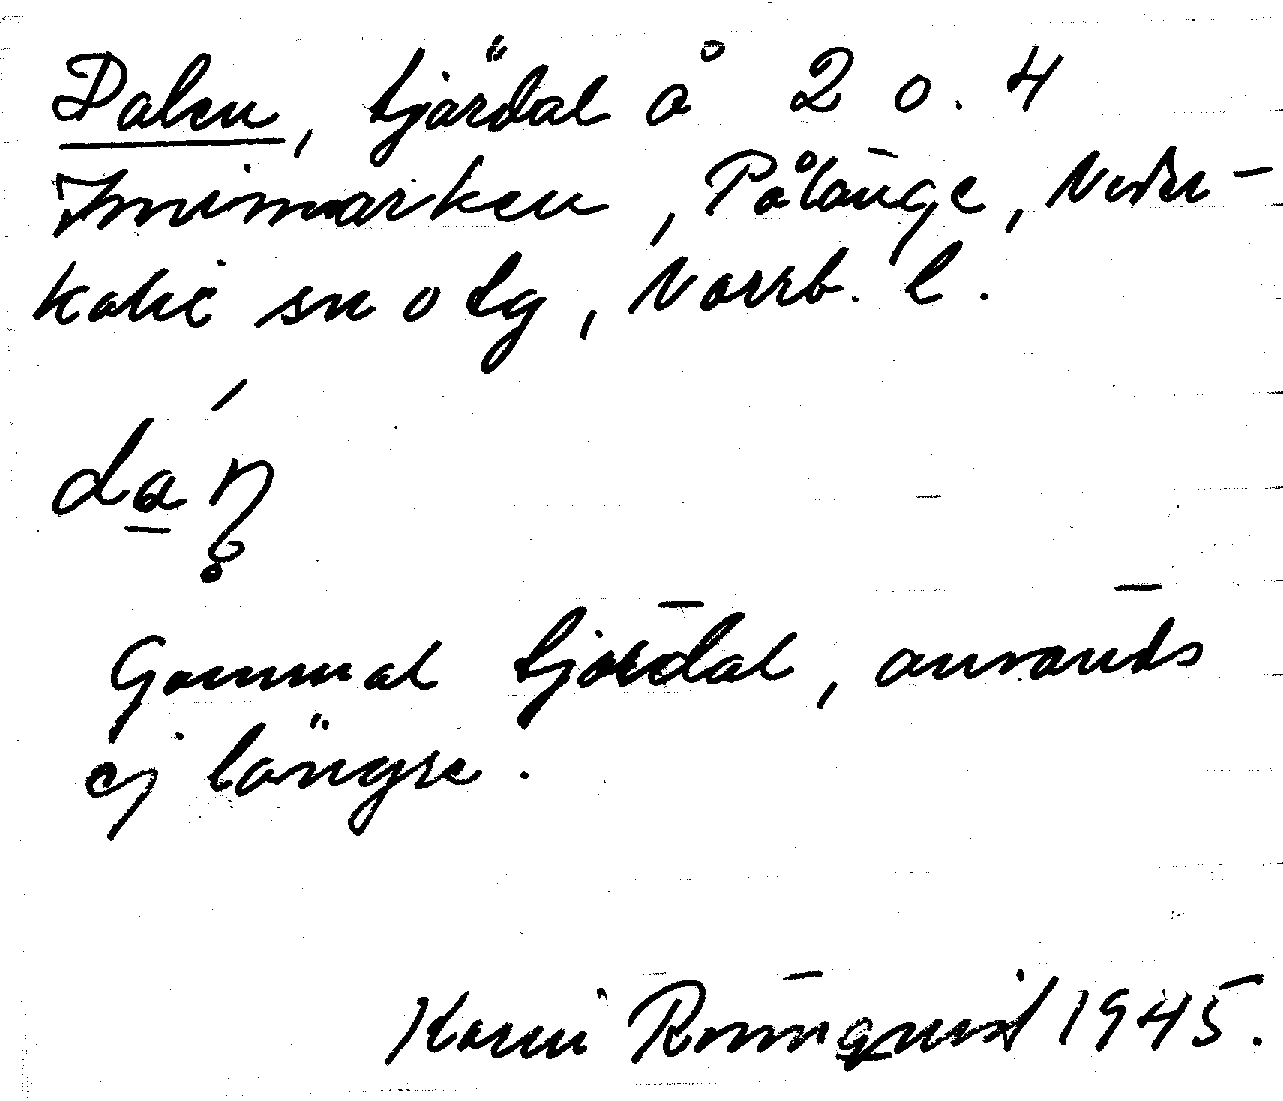 Dalen, tjärdal å 2 o. 4
Innimarken, Pålänge, Neder-
kalix sn o tg, Norrb. l.
dan
Gammal tjärdal, används
ej längre.
Karin Rönnquist 1945.